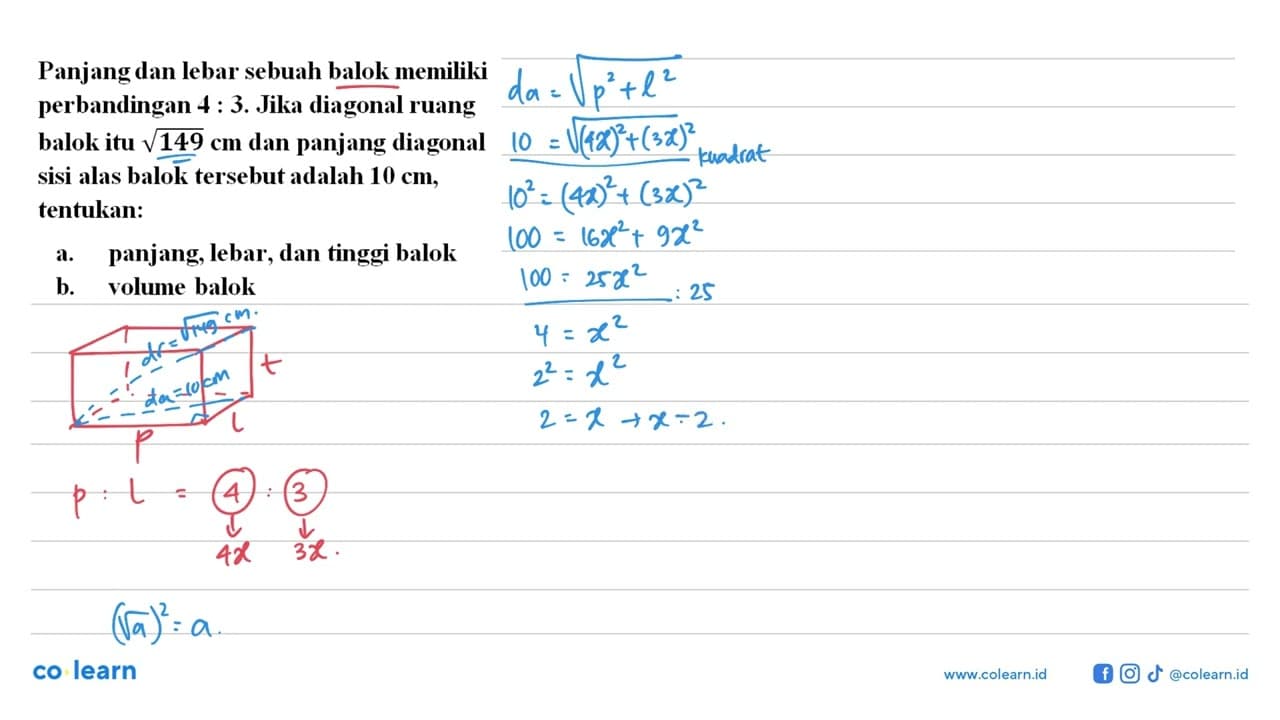 Panjang dan lebar sebuah balok memiliki
perbandingan 4 : 3. Jika diagonal ruang
balok itu √149 cm dan panjang diagonal
sisi alas balok tersebut adalah 10 cm,
tentukan:
a. panjang, lebar, dan tinggi balok
b. volume balok
dr = √149 cm.
da = 10 cm
t
l
p
p : l = 4 : 3
4x 3x.
(√a)² = a.
da = √p² + l²
10 = √(4x)² + (3x)²
kuadrat
10² = (4x)² + (3x)²
100 = 16x² + 9x²
100 = 25x²
: 25
4 = x²
2² = x²
2 = x → x = 2.
co learn
www.colearn.id
@colearn.id